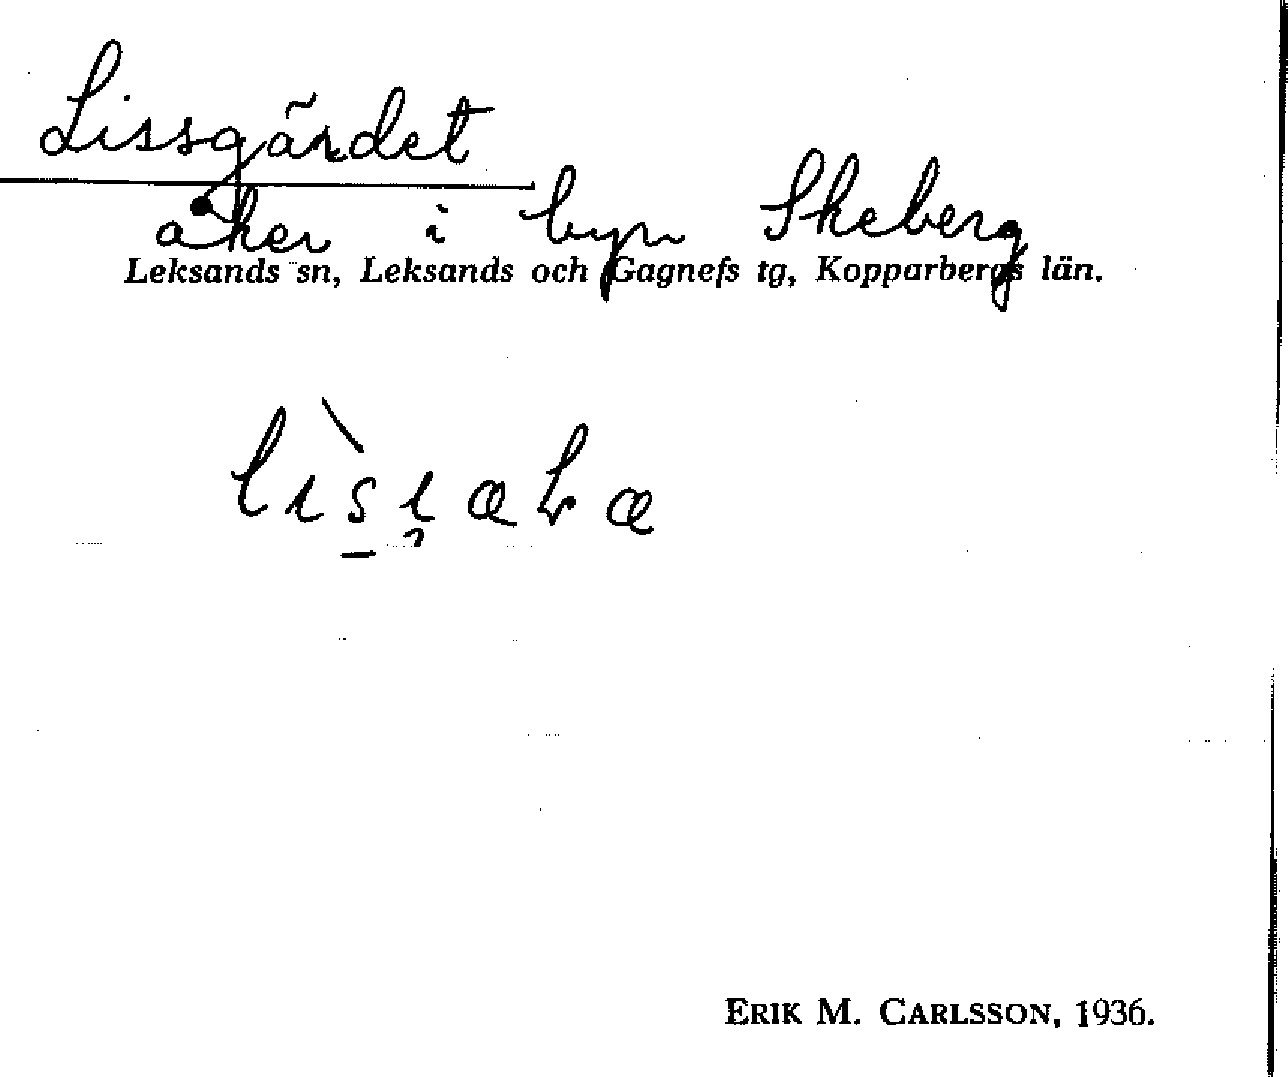 Lissgärdet
åker i byn Skeberg
Leksands sn, Leksands och Gagnefs tg, Kopparbergs län.
ERIK M. CARLSSON, 1936.